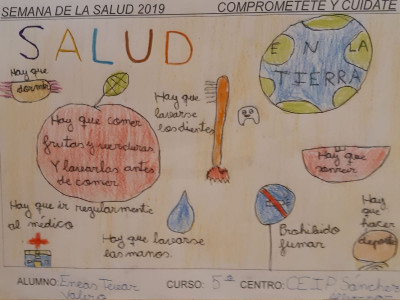 SEMANA DE LA SALUD 2019 COMPROMETETE Y CUIDATE
SALUD
EN LA
TIERRA
Hay que
dormir
Hay que comer
frutas y verduras
Y lavarlas antes
de comer
Hay que
lavarse
los dientes
Hay que
sonreir
Hay que ir regularmente
al médico
Hay que lavarse
las manos
Prohibido
fumar
Hay
que
hacer
deporte
ALUMNO: Eneas Teuar
Valero
CURSO: 5º CENTRO: C.E.I.P. Sánchez